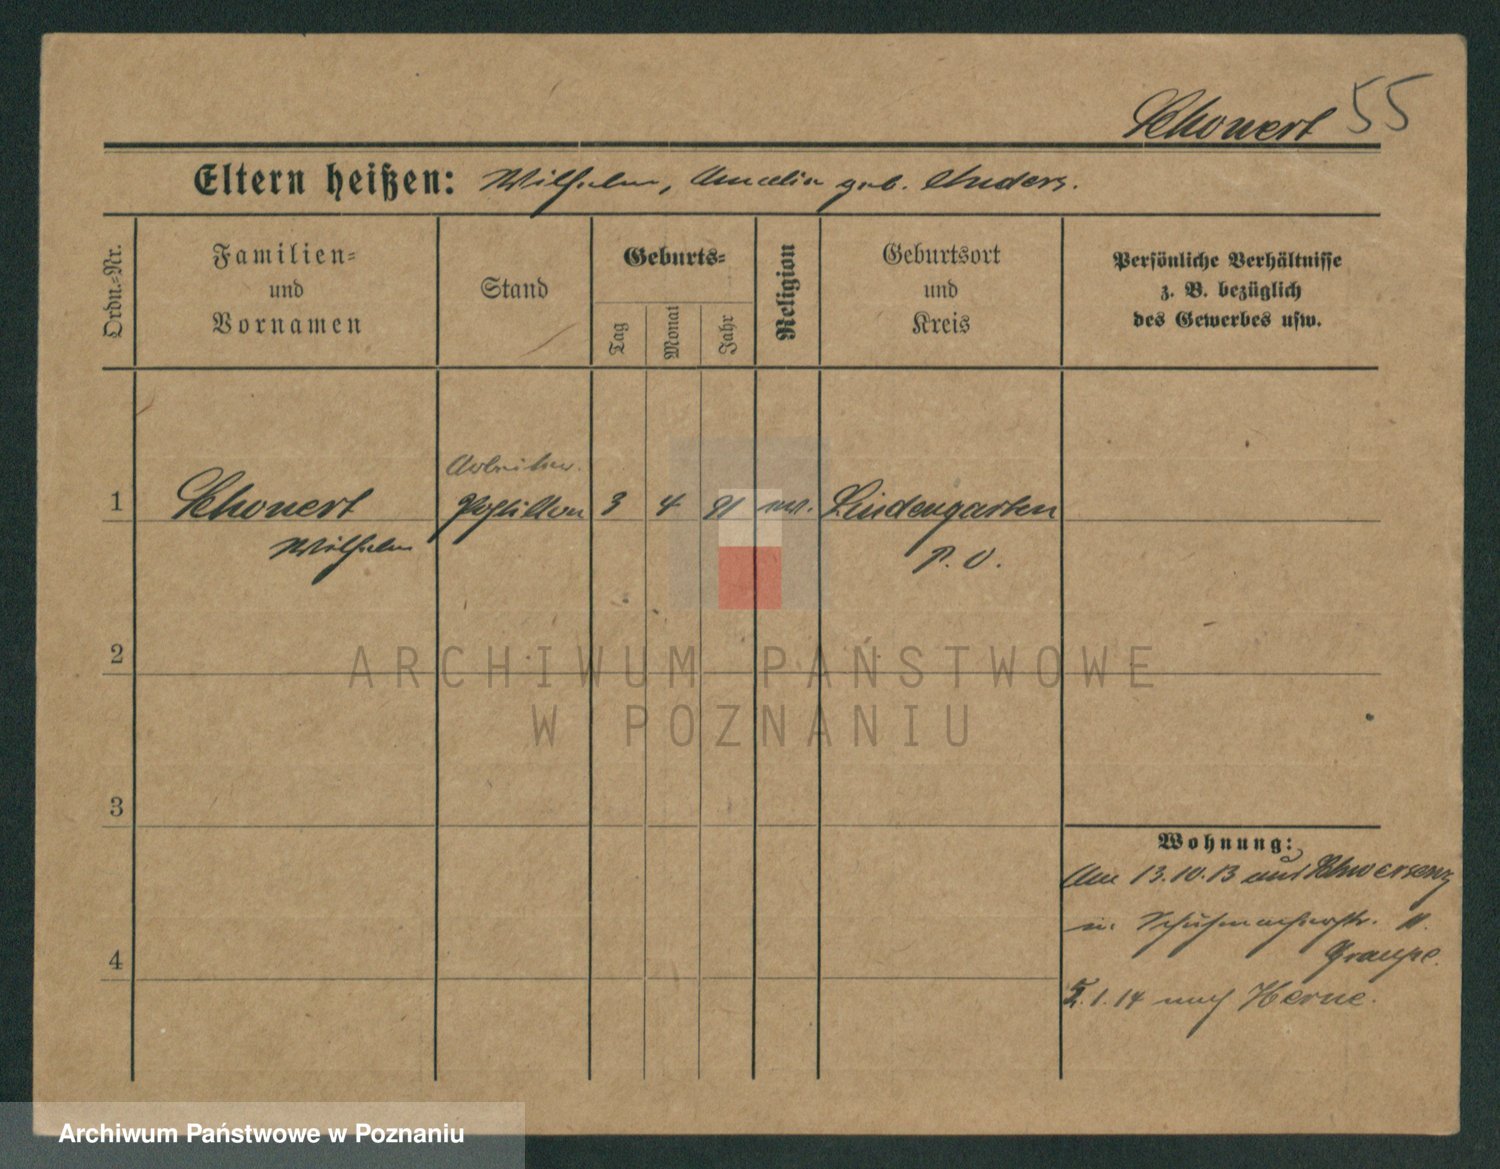 Schonert 55
Eltern heißen: Wilhelm, Amalia geb. Anders.
Ordn.-Nr.
Familien-
und
Vornamen
Stand
Geburts-
Tag
Monat
Jahr
Religion
Geburtsort
und
Kreis
Persönliche Verhältnisse
z. B. bezüglich
des Gewerbes usw.
Arbeiter.
1 Schonert Postillon 3 4 91 ev. Lindengarten
Wilhelm
P. O.
2
ARCHIWUM PAŃSTWOWE
W POZNANIU
3
Wohnung:
Am 13.10.13 aus Schwersenz
n. Schuhmacherstr. 11.
4
Graupe.
2.1.14 nach Herne.
Archiwum Państwowe w Poznaniu